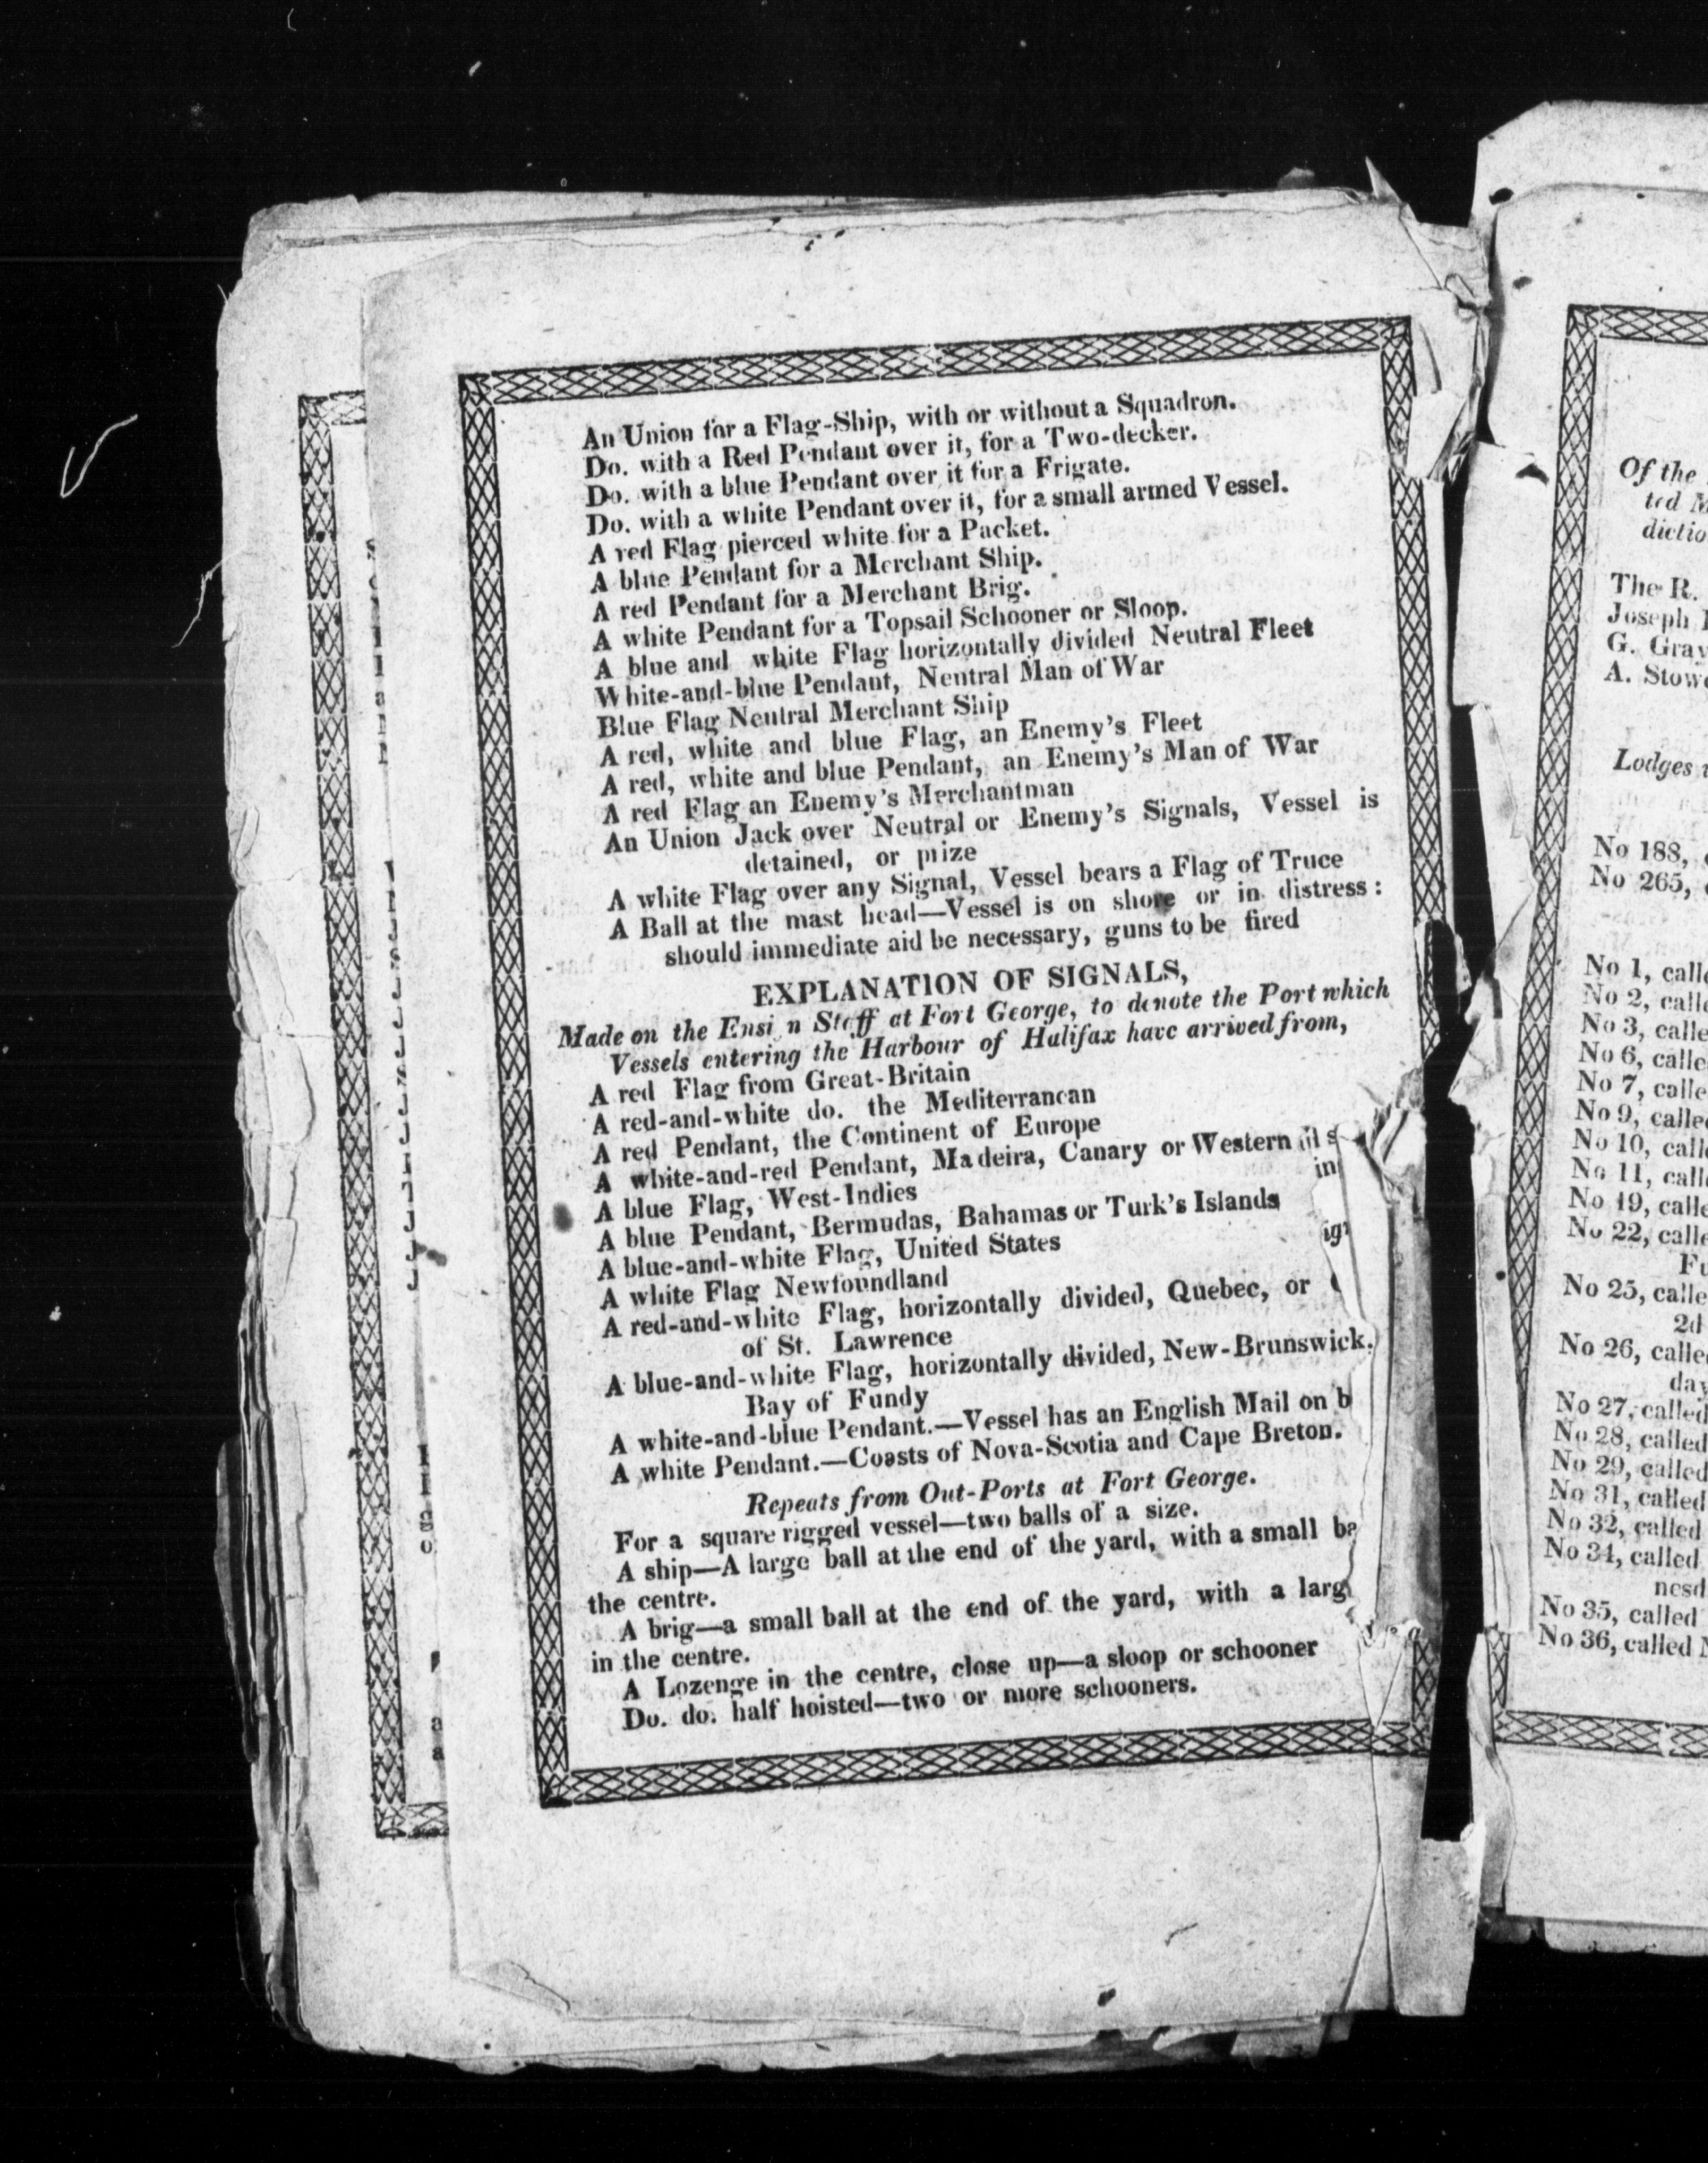 An Union for a Flag-Ship, with or without a Squadron.
Do. with a Red Pendant over it, for a Two-decker.
Do. with a blue Pendant over it for a Frigate.
Do. with a white Pendant over it, for a small armed Vessel.
A red Flag pierced white for a Packet.
A blue Pendant for a Merchant Ship.
A red Pendant for a Merchant Brig.
A white Pendant for a Topsail Schooner or Sloop.
A blue and white Flag horizontally divided Neutral Fleet
White-and-blue Pendant, Neutral Man of War
Blue Flag Neutral Merchant Ship
A red, white and blue Flag, an Enemy's Fleet
A red, white and blue Pendant, an Enemy's Man of War
A red Flag an Enemy's Merchantman
An Union Jack over Neutral or Enemy's Signals, Vessel is
detained, or prize
A white Flag over any Signal, Vessel bears a Flag of Truce
A Ball at the mast head—Vessel is on shore or in distress:
should immediate aid be necessary, guns to be fired
EXPLANATION OF SIGNALS,
Made on the Ensi n Staff at Fort George, to denote the Port which
Vessels entering the Harbour of Halifax have arrived from,
A red Flag from Great-Britain
A red-and-white do. the Mediterranean
A red Pendant, the Continent of Europe
A white-and-red Pendant, Madeira, Canary or Western
A blue Flag, West-Indies
A blue Pendant, Bermudas, Bahamas or Turk's Islands
A blue-and-white Flag, United States
A white Flag Newfoundland
A red-and-white Flag, horizontally divided, Quebec, or
of St. Lawrence
A blue-and-white Flag, horizontally divided, New-Brunswick.
Bay of Fundy
A white-and-blue Pendant.—Vessel has an English Mail on b
A white Pendant.—Coasts of Nova-Scotia and Cape Breton.
Repeats from Out-Ports at Fort George.
For a square rigged vessel—two balls of a size.
A ship—A large ball at the end of the yard, with a small ba
the centre.
A brig—a small ball at the end of the yard, with a larg
in the centre.
A Lozenge in the centre, close up—a sloop or schooner
Do. do. half hoisted—two or more schooners.
Of the
ted M
dictio
The R.
Joseph
G. Gray
A. Stow
Lodges
No 188,
No 265,
No 1, calle
No 2, calle
No 3, calle
No 6, calle
No 7, calle
No 9, called
No 10, calle
No 11, calle
No 19, calle
No 22, calle
Fu
No 25, calle
2d
No 26, called
day
No 27, called
No 28, called
No 29, called
No 31, called
No 32, called
No 34, called
nesd
No 35, called
No 36, called